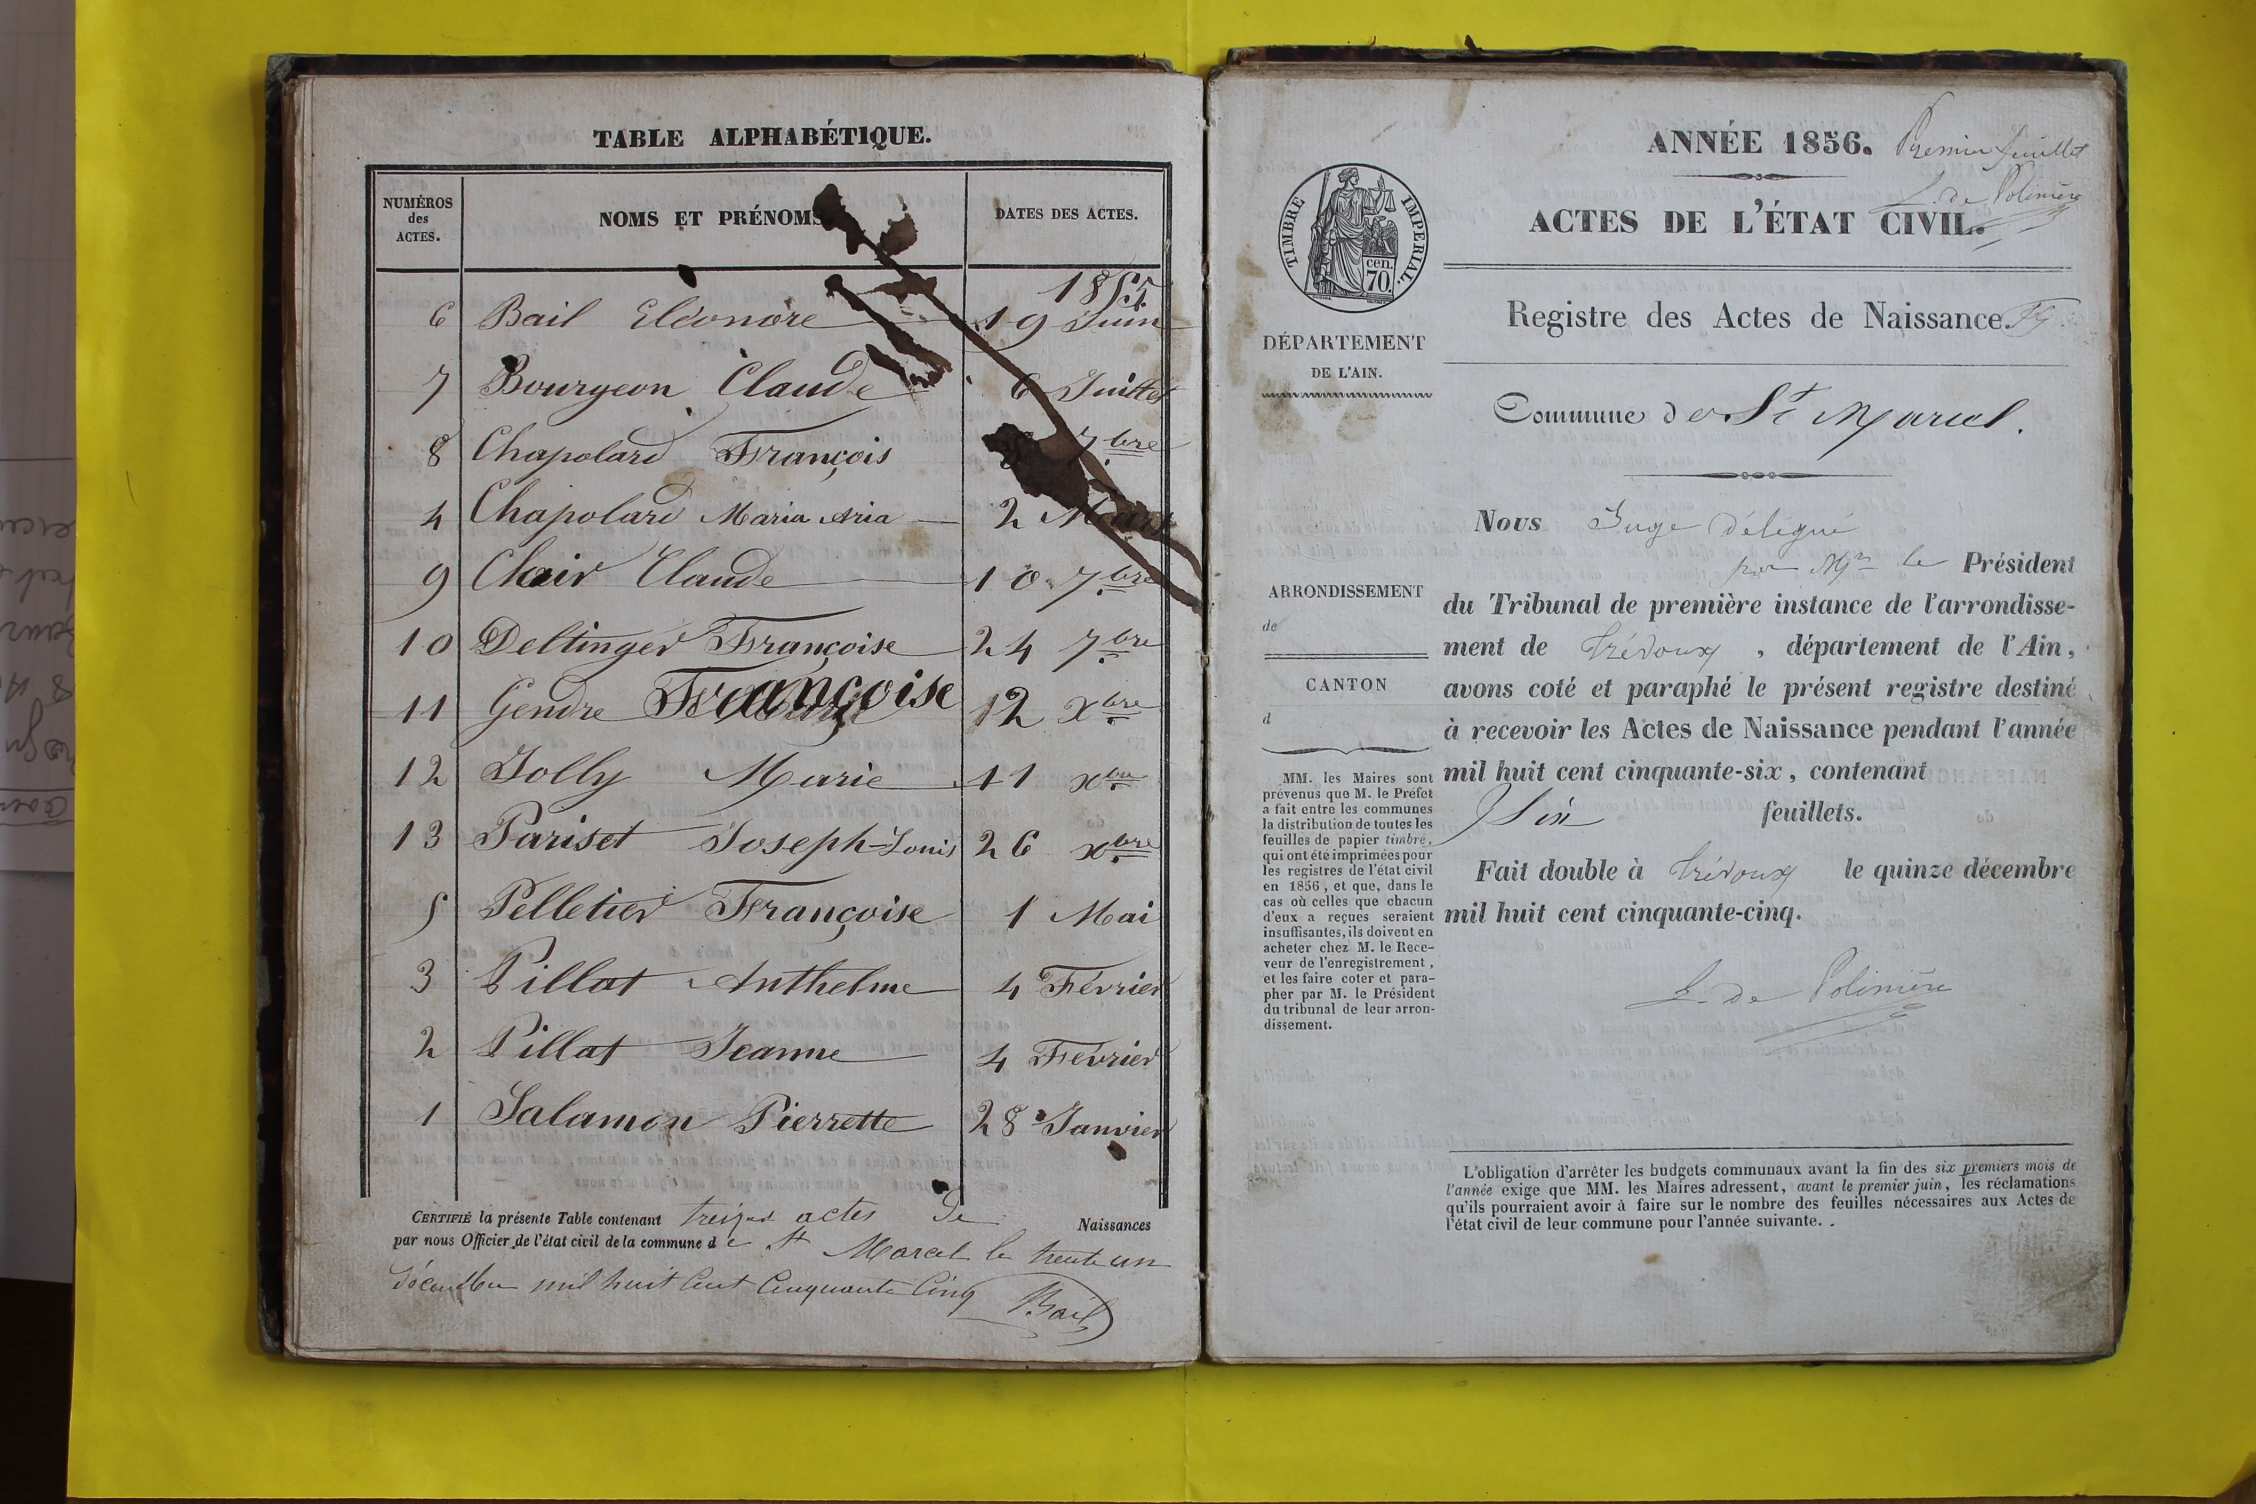 TABLE ALPHABÉTIQUE.
NUMÉROS des ACTES. NOMS ET PRÉNOMS DATES DES ACTES.
1855
6 Bail Eléonore 19 Juin
7 Bourgeon Claude 6 Juillet
8 Chapolard François 7.bre
4 Chapolard Maria Aria 2 Mars
9 Clair Claude 10 7.bre
10 Deltinger Françoise 24 7.bre
11 Gendre Françoise 12 Xbre
12 Jolly Marie 11 Xbre
13 Pariset Joseph-Louis 26 Xbre
5 Pelletier Françoise 1 Mai
3 Pillat Anthelme 4 Février
2 Pillat Jeanne 4 Février
1 Salamon Pierrette 28 Janvier
CERTIFIÉ la présente Table contenant treize actes de Naissances
par nous Officier de l'état civil de la commune de St Marcel le trente un
décembre mil huit Cent Cinquante Cinq Bail
ANNÉE 1856. Premier feuillet
L. de Polinière
ACTES DE L'ÉTAT CIVIL.
TIMBRE IMPERIAL.
cen.
70.
Registre des Actes de Naissance.
DÉPARTEMENT
DE L'AIN.
Commune de St Marcel.
Nous Juge délégué
par Mr le Président
ARRONDISSEMENT
de
du Tribunal de première instance de l'arrondisse-
ment de Trévoux, département de l'Ain,
CANTON
d
avons coté et paraphé le présent registre destiné
à recevoir les Actes de Naissance pendant l'année
mil huit cent cinquante-six, contenant
Six feuillets.
Fait double à Trévoux le quinze décembre
mil huit cent cinquante-cinq.
L. de Polinière
MM. les Maires sont
prévenus que M. le Préfet
a fait entre les communes
la distribution de toutes les
feuilles de papier timbré,
qui ont été imprimées pour
les registres de l'état civil
en 1856, et que, dans le
cas où celles que chacun
d'eux a reçues seraient
insuffisantes, ils doivent en
acheter chez M. le Rece-
veur de l'enregistrement,
et les faire coter et para-
pher par M. le Président
du tribunal de leur arron-
dissement.
L'obligation d'arrêter les budgets communaux avant la fin des six premiers mois de
l'année exige que MM. les Maires adressent, avant le premier juin, les réclamations
qu'ils pourraient avoir à faire sur le nombre des feuilles nécessaires aux Actes de
l'état civil de leur commune pour l'année suivante.